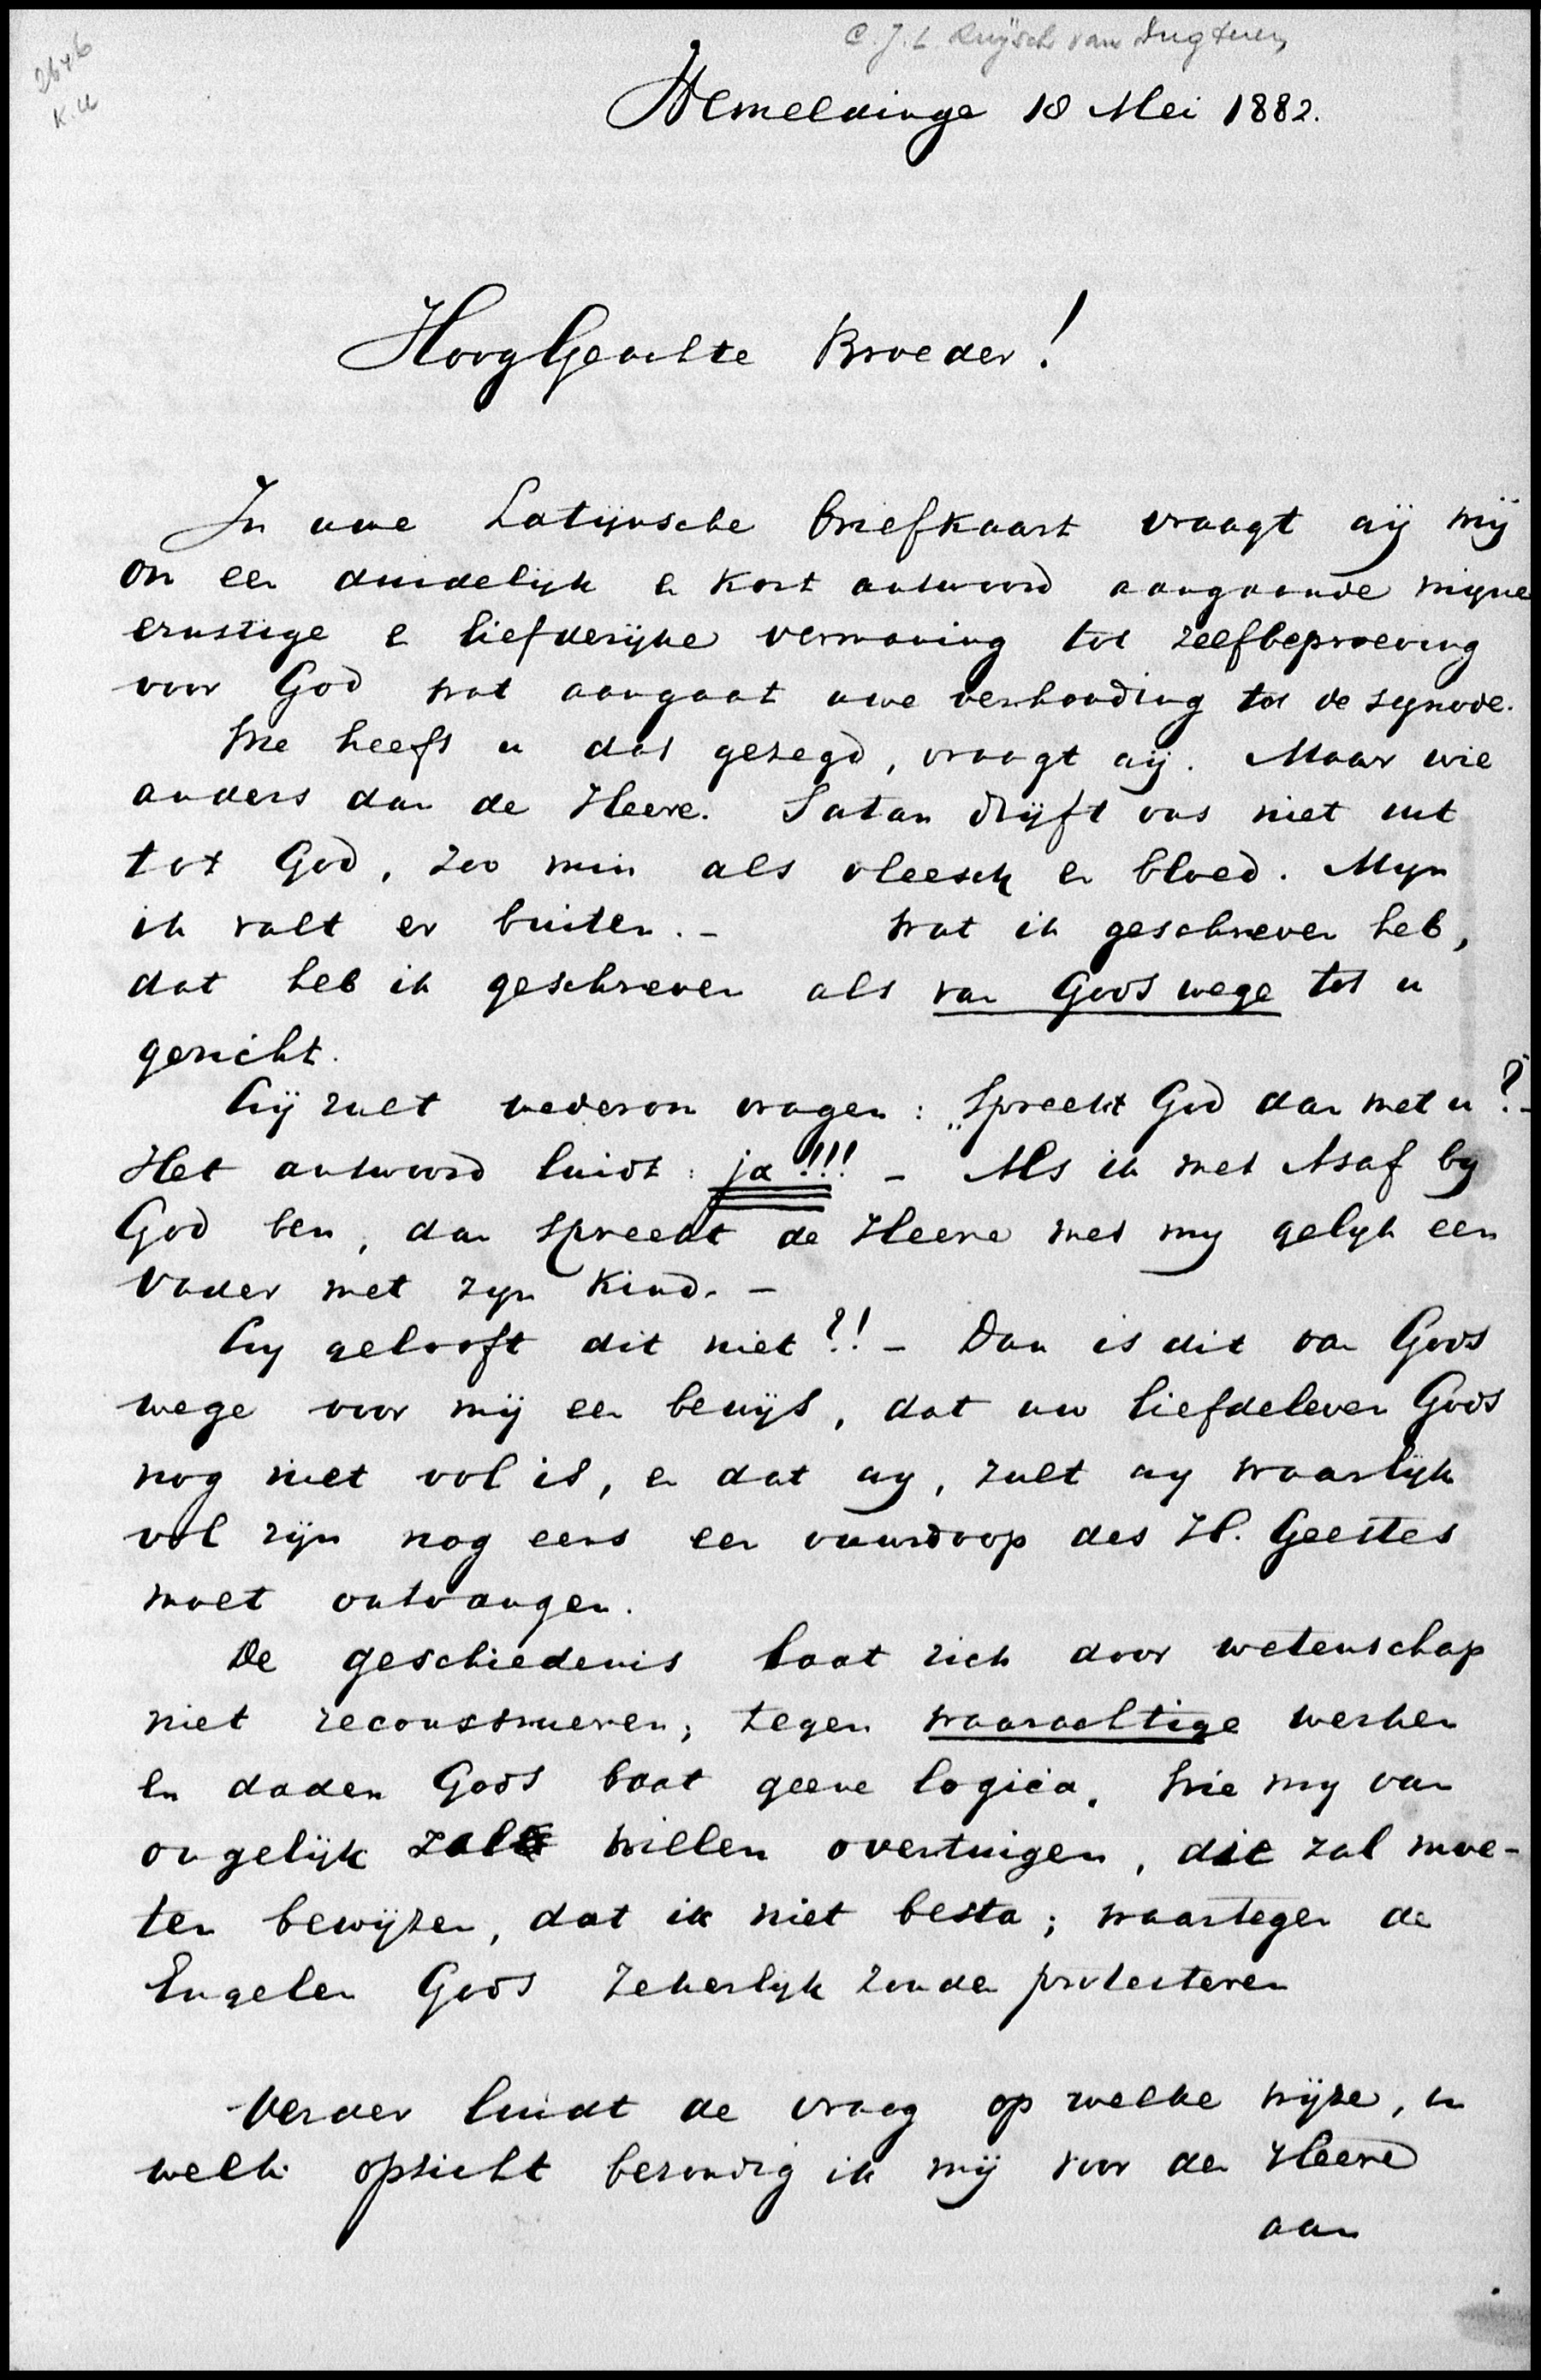 C. J. L. Ruÿsch van Dugteren
2646
K.U
Hemeldinge 18 Mei 1882.
HoogGeachte Broeder!
In uwe Latijnsche briefkaart vraagt gij mij
om een duidelijk en kort antwoord aangaande mijne
ernstige en liefderijke vermaning tot zelfbeproeving
voor God wat aangaat uwe verhouding tot de synode.
Wie heeft u dat gezegd, vraagt gij. Maar wie
anders dan de Heere. Satan drijft ons niet uit
tot God, zoo min als vleesch en bloed. Mijn
ik valt er buiten. – Wat ik geschreven heb,
dat heb ik geschreven als van Gods wege tot u
gericht.
Gij zult wederom vragen: „Spreekt God dan met u?" –
Het antwoord luidt: ja!!! – Als ik met Asaf bij
God ben, dan spreekt de Heere met mij gelijk een
Vader met zijn kind. –
Gij gelooft dit niet?! – Dan is dit van Gods
wege voor mij een bewijs, dat uw liefdeleven Gods
nog niet vol is, en dat gij, zult gij waarlijk
vol zijn nog eens een vuurdoop des H. Geestes
moet ontvangen.
De geschiedenis laat zich door wetenschap
niet reconstrueren; tegen waarachtige werken
en daden Gods baat geene logica. Wie mij van
ongelijk zal willen overtuigen, die zal moe-
ten bewijzen, dat ik niet besta; waartegen de
Engelen Gods zekerlijk zouden protesteren
Verder luidt de vraag op welke wijze, in
welk opzicht bezondig ik mij voor den Heere
aan